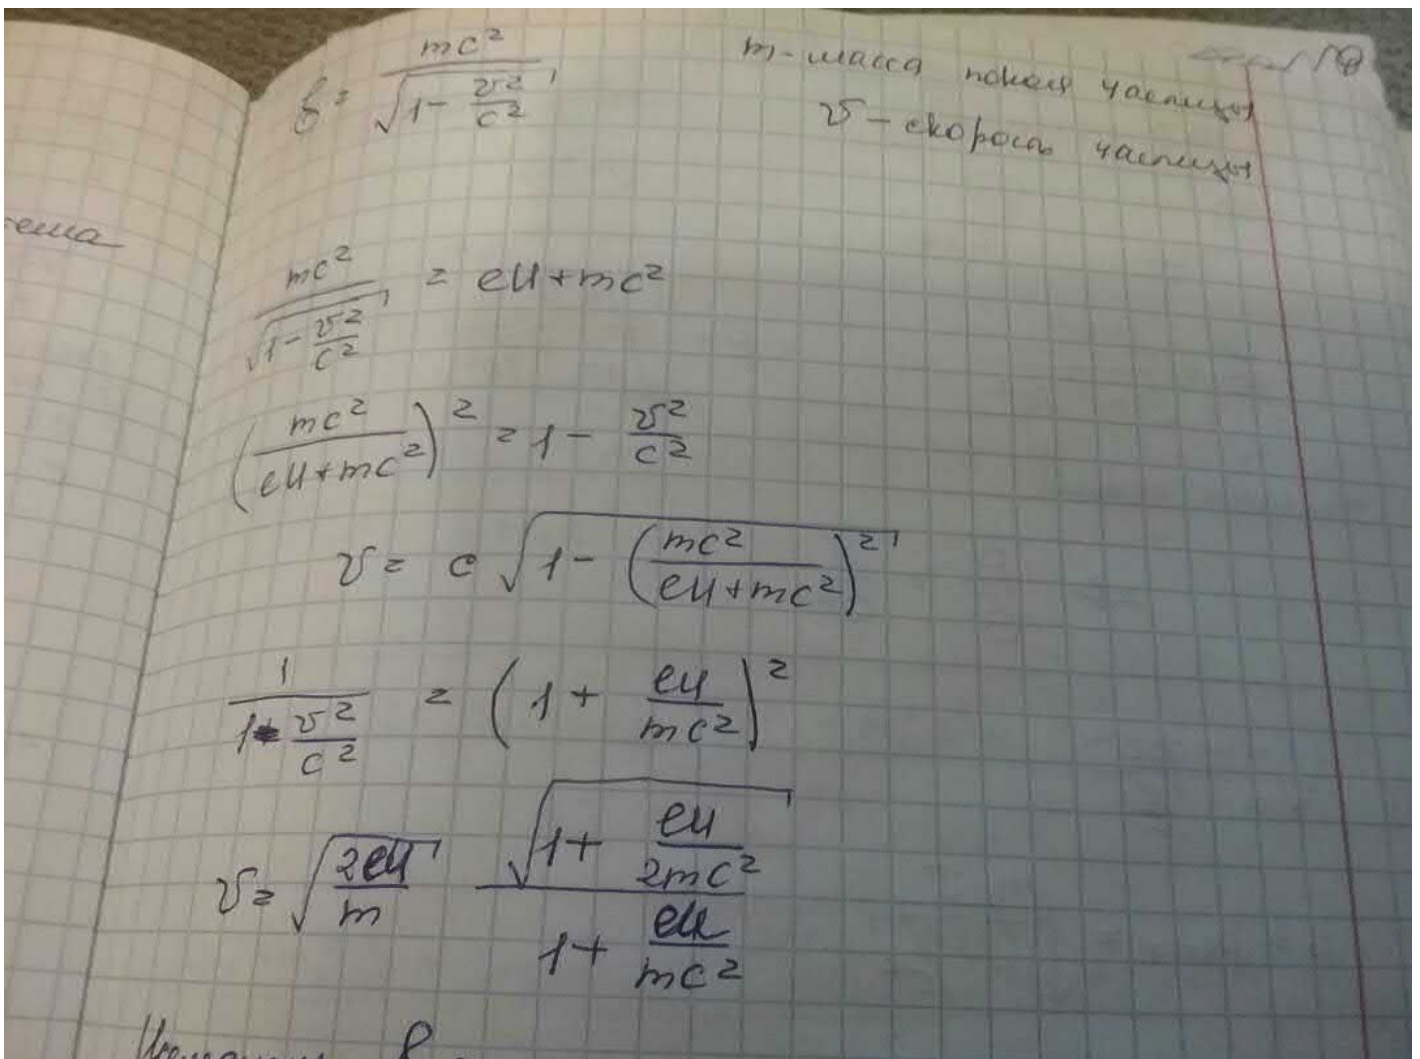 ℰ = mc² / √(1 - v²/c²) m - масса покоя частицы
v - скорость частицы
ема
mc² / √(1 - v²/c²) = eU + mc²
(mc² / (eU + mc²))² = 1 - v²/c²
v = c √(1 - (mc² / (eU + mc²))²)
1 / (1 - v²/c²) = (1 + eU/mc²)²
v = √(2eU/m) √(1 + eU/2mc²) / (1 + eU/mc²)